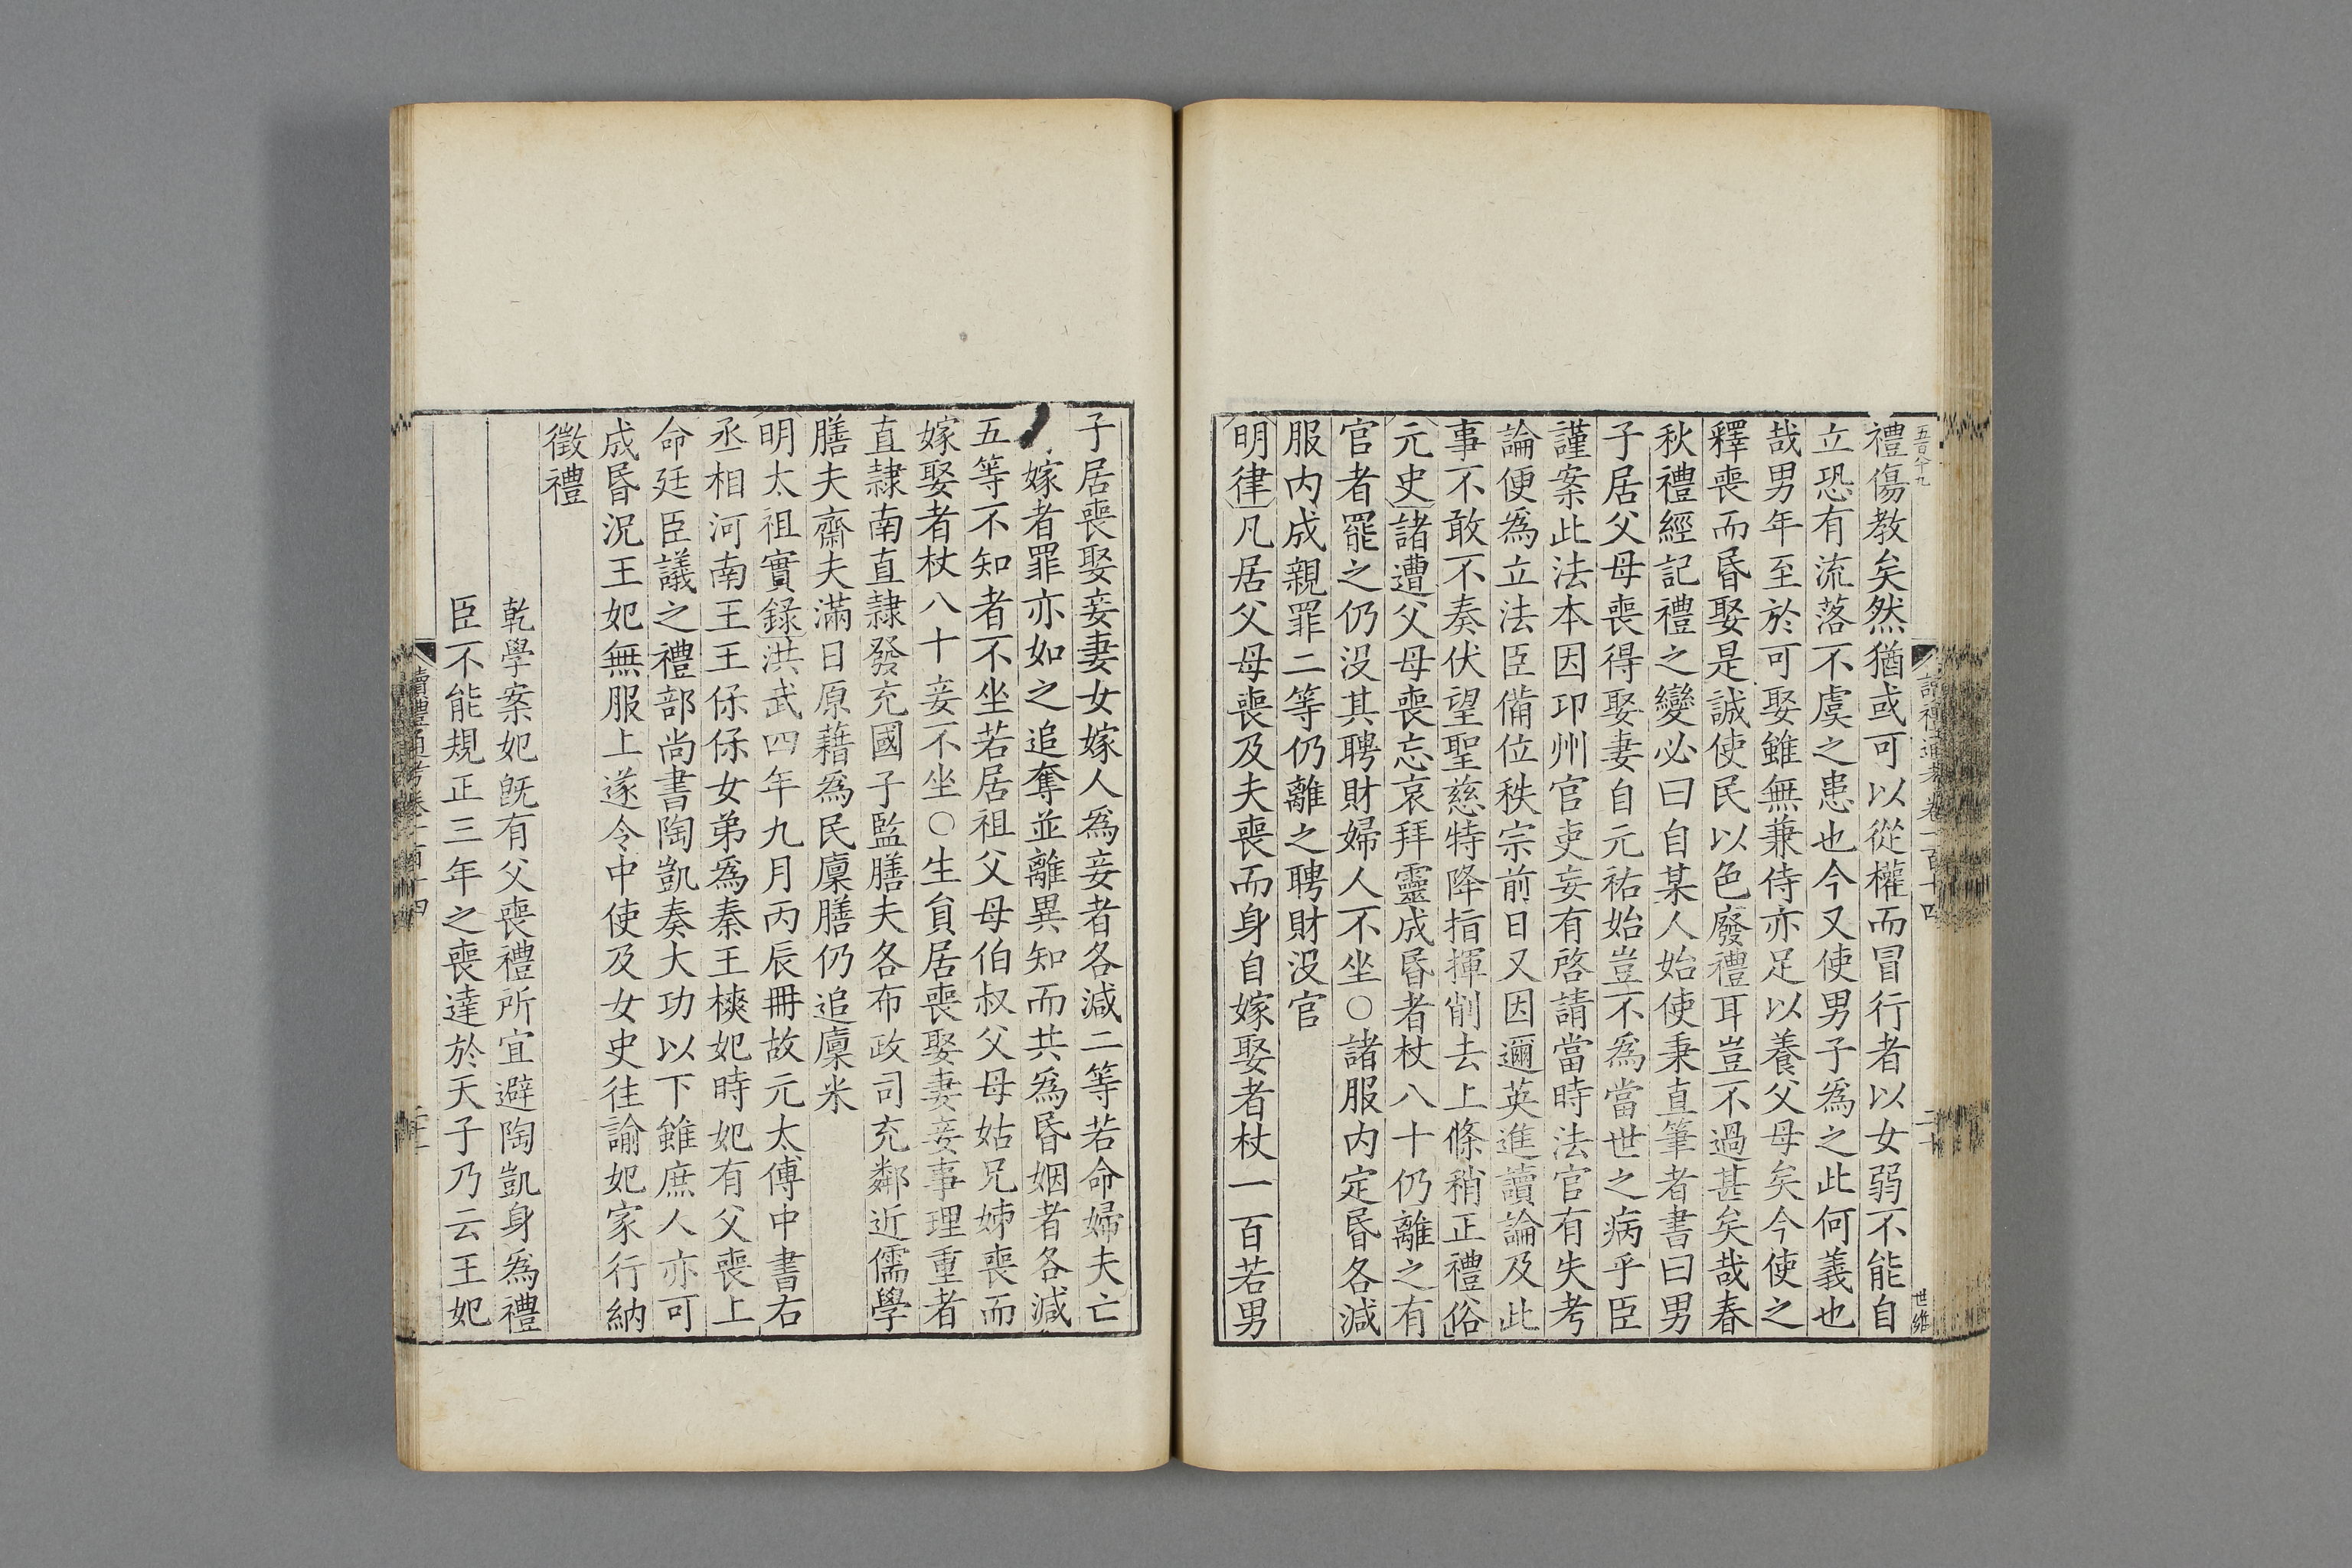 五百八十九
讀禮通考卷一百十四
二十
世維
禮傷教矣然猶或可以從權而冒行者以女弱不能自
立恐有流落不虞之患也今又使男子爲之此何義也
哉男年至於可娶雖無兼侍亦足以養父母矣今使之
釋喪而昏娶是誠使民以色廢禮耳豈不過甚矣哉春
秋禮經記禮之變必曰自某人始使秉直筆者書曰男
子居父母喪得娶妻自元祐始豈不爲當世之病乎臣
謹案此法本因邛州官吏妄有啓請當時法官有失考
論便爲立法臣備位秩宗前日又因邇英進讀論及此
事不敢不奏伏望聖慈特降指揮削去上條稍正禮俗
元史諸遭父母喪忘哀拜靈成昏者杖八十仍離之有
官者罷之仍没其聘財婦人不坐○諸服内定昏各減
服内成親罪二等仍離之聘財没官
明律凡居父母喪及夫喪而身自嫁娶者杖一百若男
子居喪娶妾妻女嫁人爲妾者各減二等若命婦夫亡
嫁者罪亦如之追奪並離異知而共爲昏姻者各減
五等不知者不坐若居祖父母伯叔父母姑兄姊喪而
嫁娶者杖八十妾不坐○生員居喪娶妻妾事理重者
直隷南直隷發充國子監膳夫各布政司充鄰近儒學
膳夫齋夫滿日原藉爲民廩膳仍追廩米
明太祖實録洪武四年九月丙辰冊故元太傅中書右
丞相河南王王保保女弟爲秦王樉妃時妃有父喪上
命廷臣議之禮部尚書陶凱奏大功以下雖庶人亦可
成昏況王妃無服上遂令中使及女史往諭妃家行納
徵禮
乾學案妃既有父喪禮所宜避陶凱身爲禮
臣不能規正三年之喪達於天子乃云王妃
讀禮通考卷一百十四